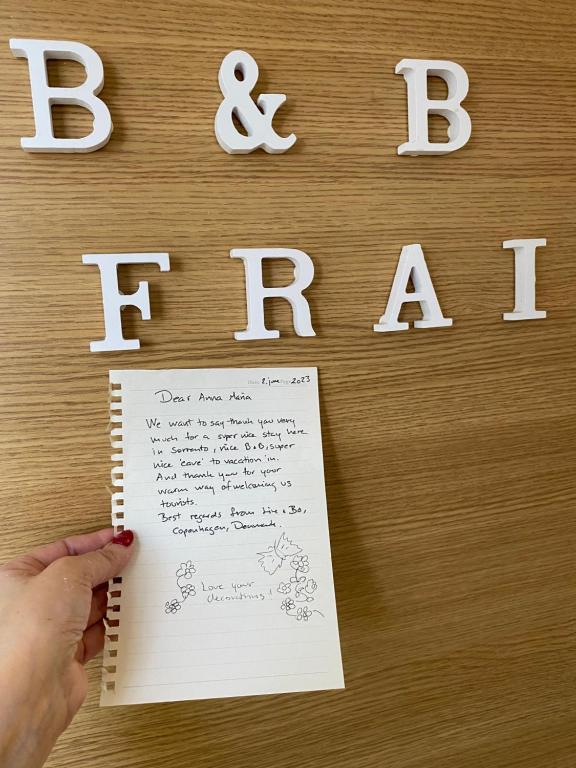 B & B
FRAI
Date 2. june 2023
Dear Anna Maria
We want to say thank you very
much for a super nice stay here
in Sorrento, nice B&B, super
nice 'cave' to vacation in.
And thank you for your
warm way of welcoming us
tourists.
Best regards from & Bo,
Copenhagen, Denmark.
Love your
decorations!